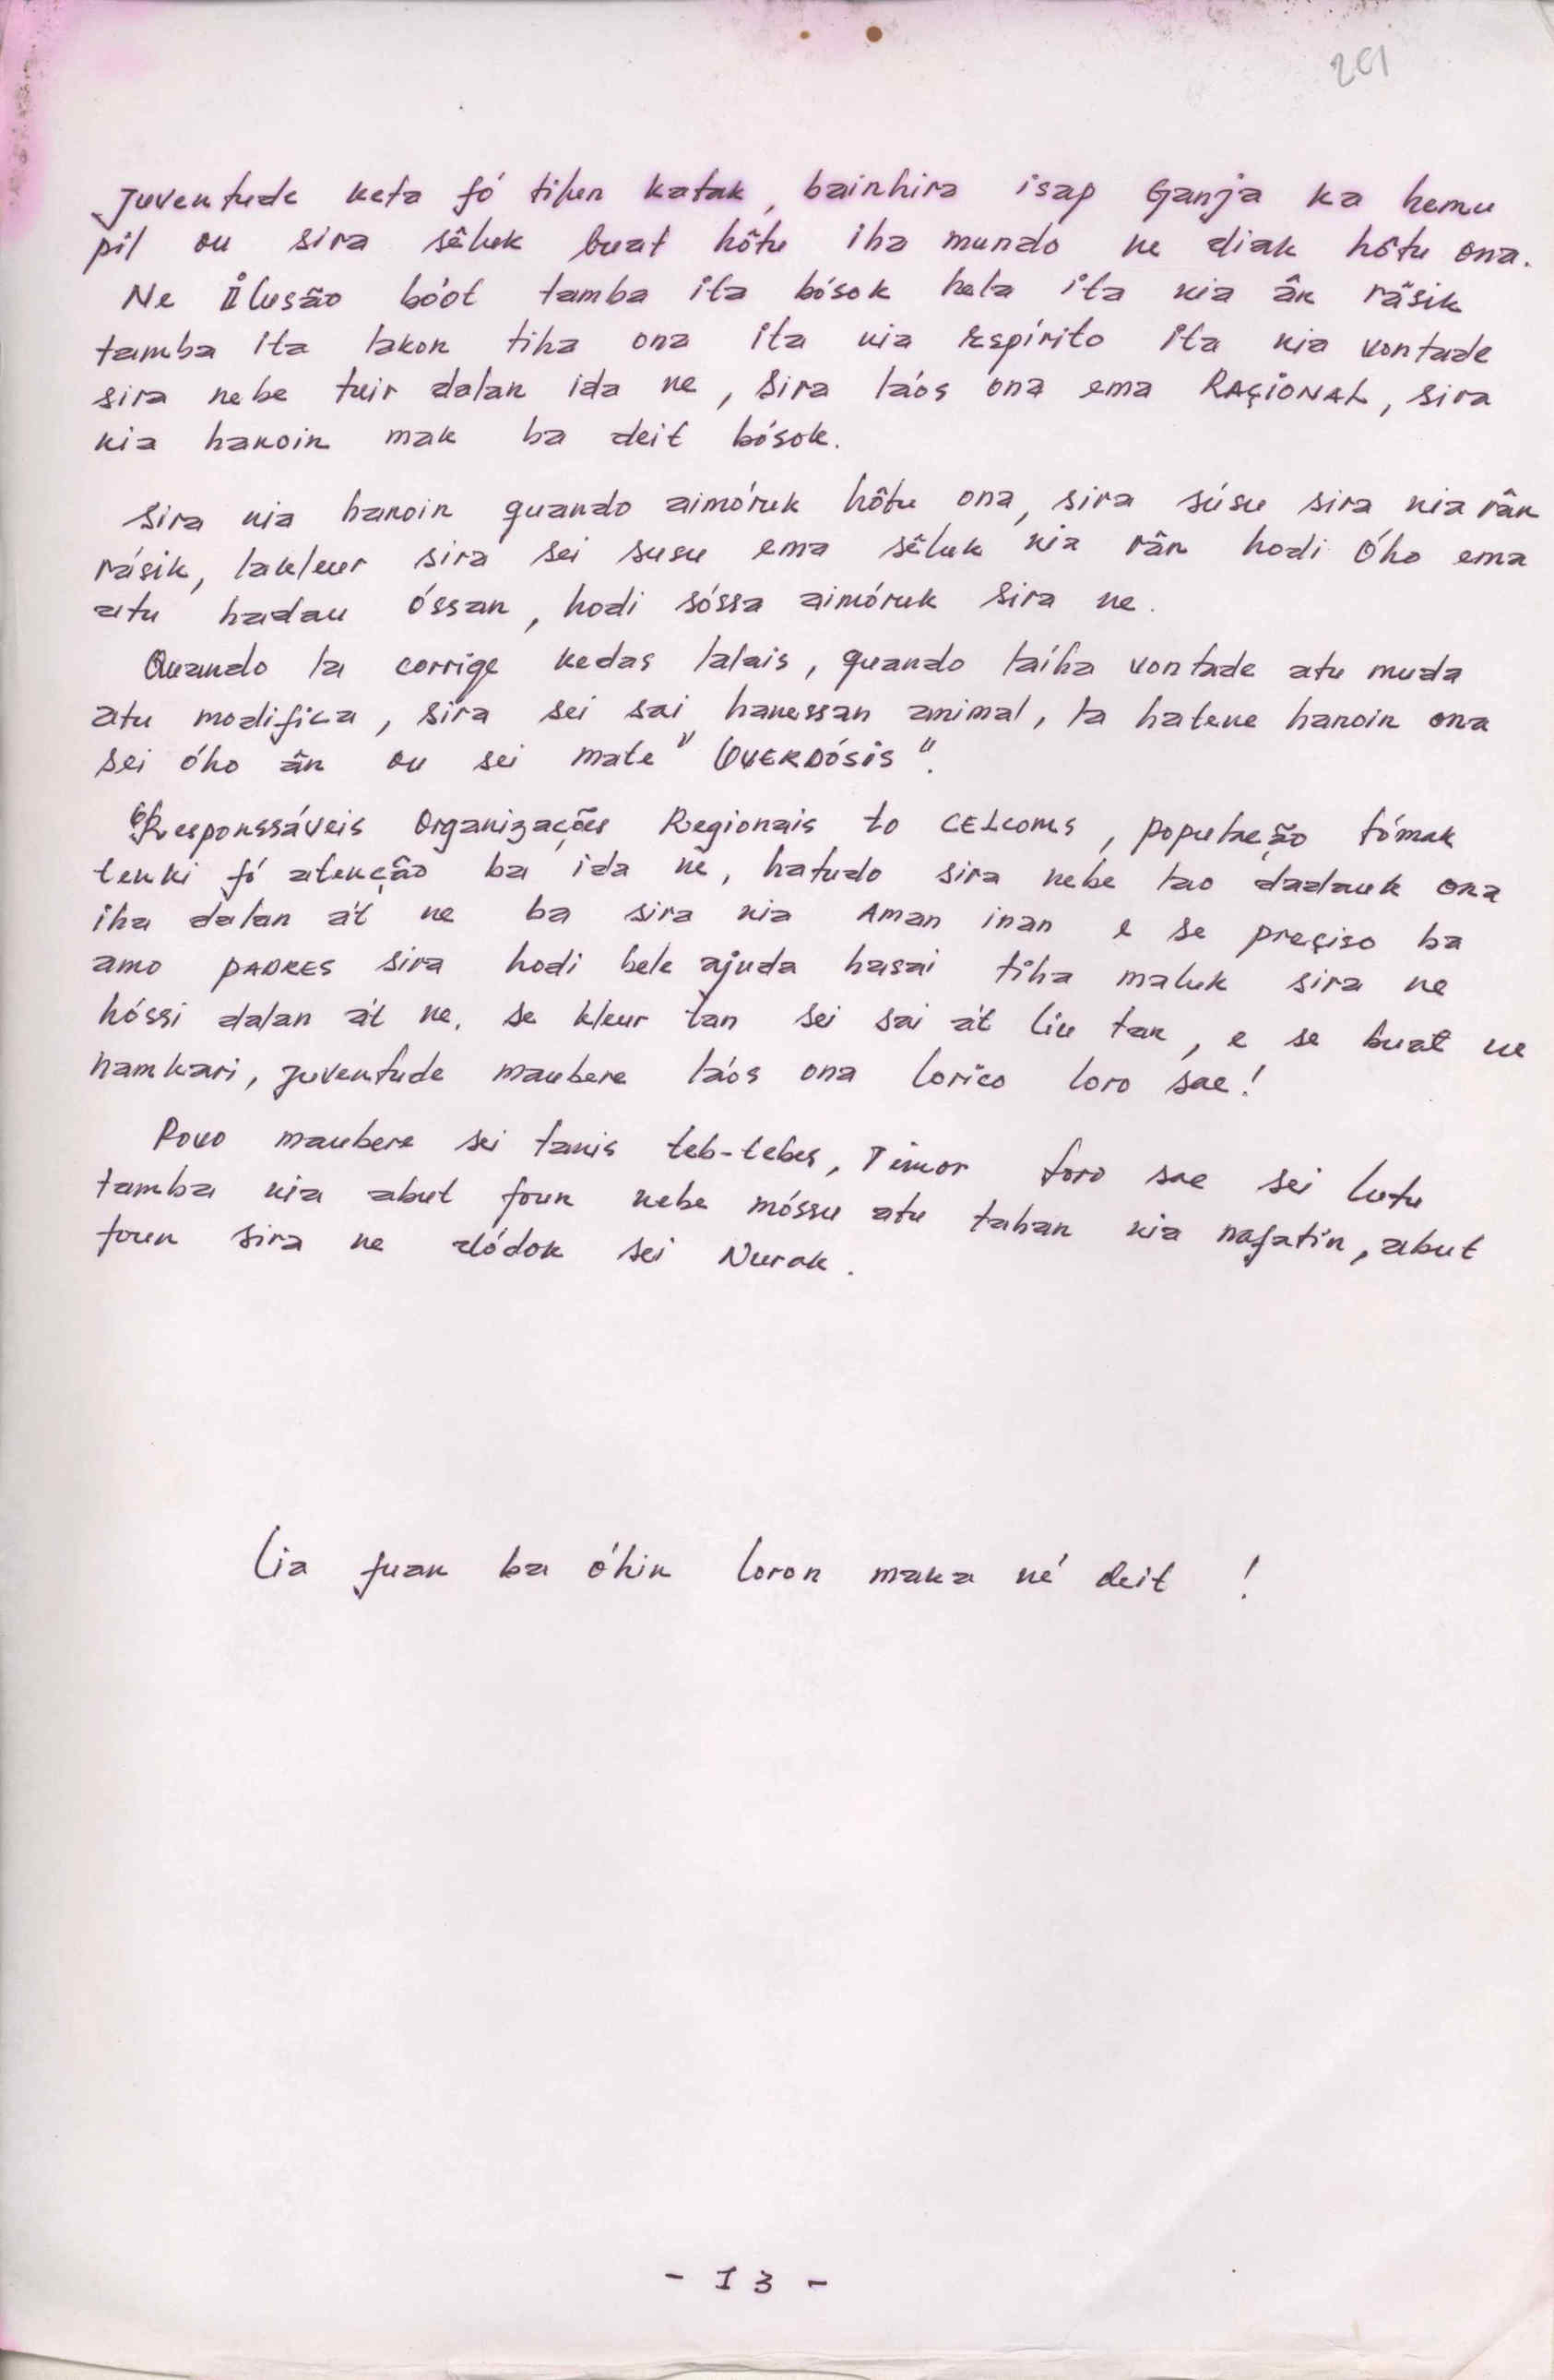 201
Juventude keta fó tilun katak, bainhira isap Ganja ka hemu
pil ou sira sêluk buat hôtu iha mundo ne diak hôtu ona.
Ne Ilusão bóot tamba ita bósok hela ita nia ân râsik
tamba ita lakon tiha ona ita nia Espírito ita nia vontade
sira nebe tuir dalan ida ne, sira láos ona ema RAÇIONAL, sira
nia hanoin mak ba deit bósok.
Sira nia hanoin quando aimóruk hôtu ona, sira súsu sira nia rân
rásik, lakleur sira sei susu ema sêluk nia rân hodi óho ema
atu hadau óssan, hodi sóssa aimóruk sira ne.
Quando la corrige kedas lalais, quando laíha vontade atu muda
atu modifica, sira sei sai hanessan animal, la hatene hanoin ona
sei óho ân ou sei mate "OVERDÓSIS".
Responssáveis Organizações Regionais to CELCOMS, população tómak
tenki fó atenção ba ida ne, hatudo sira nebe lao dadauk ona
iha dalan át ne ba sira nia Aman inan e se preçiso ba
amo PADRES sira hodi bele ajuda hasai tiha maluk sira ne
hóssi dalan át ne. se kleur tan sei sai át liu tan, e se buat ne
namkari, juventude maubere láos ona lorico loro sae!
Povo maubere sei tanis teb-tebes, Timor loro sae sei lutu
tamba nia abut foun nebe móssu atu tahan nia nafatin, abut
foun sira ne dódok sei Nurak.
Lia fuan ba óhin loron maka né deit !
- 13 -